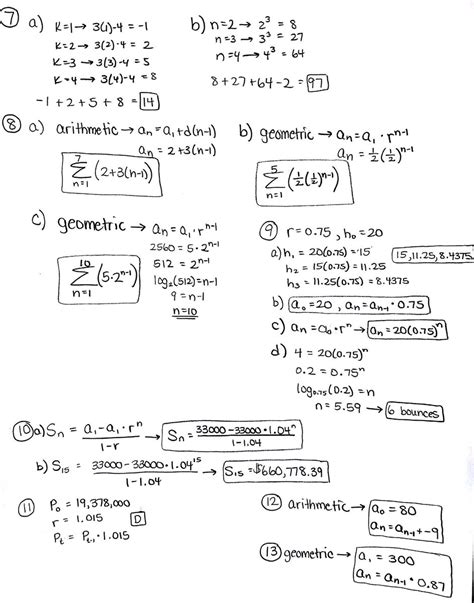 ⑦ a) K=1→ 3(1)-4 = -1
K=2→ 3(2)-4 = 2
K=3 → 3(3)-4 = 5
K=4→ 3(4)-4 = 8
-1 + 2 + 5 + 8 = 14
b) n=2→ 2³ = 8
n=3 → 3³ = 27
n=4→ 4³ = 64
8+27+64-2 = 97
⑧ a) arithmetic → aₙ=a₁+d(n-1)
aₙ = 2+3(n-1)
7
Σ (2+3(n-1))
n=1
b) geometric → aₙ=a₁·rⁿ⁻¹
aₙ = ½(½)ⁿ⁻¹
5
Σ (½(½)ⁿ⁻¹)
n=1
c) geometric → aₙ=a₁·rⁿ⁻¹
2560 = 5·2ⁿ⁻¹
512 = 2ⁿ⁻¹
log₂(512)=n-1
9 = n-1
n=10
10
Σ (5·2ⁿ⁻¹)
n=1
⑨ r=0.75, h₀=20
a) h₁ = 20(0.75)=15
h₂ = 15(0.75) = 11.25
h₃ = 11.25(0.75)=8.4375
15,11.25,8.4375
b) a₀=20, aₙ=aₙ₋₁·0.75
c) aₙ=a₀·rⁿ→ aₙ=20(0.75)ⁿ
d) 4 = 20(0.75)ⁿ
0.2 = 0.75ⁿ
log₀.₇₅(0.2)=n
n = 5.59 → 6 bounces
⑩ a) Sₙ = a₁-a₁·rⁿ / 1-r → Sₙ = 33000-33000·1.04ⁿ / 1-1.04
b) S₁₅ = 33000-33000·1.04¹⁵ / 1-1.04 → S₁₅=$660,778.39
⑪ P₀ = 19,378,000
r = 1.015 D
Pₜ = Pₜ₋₁·1.015
⑫ arithmetic → a₀ = 80
aₙ = aₙ₋₁+-9
⑬ geometric → a₁ = 300
aₙ = aₙ₋₁·0.87